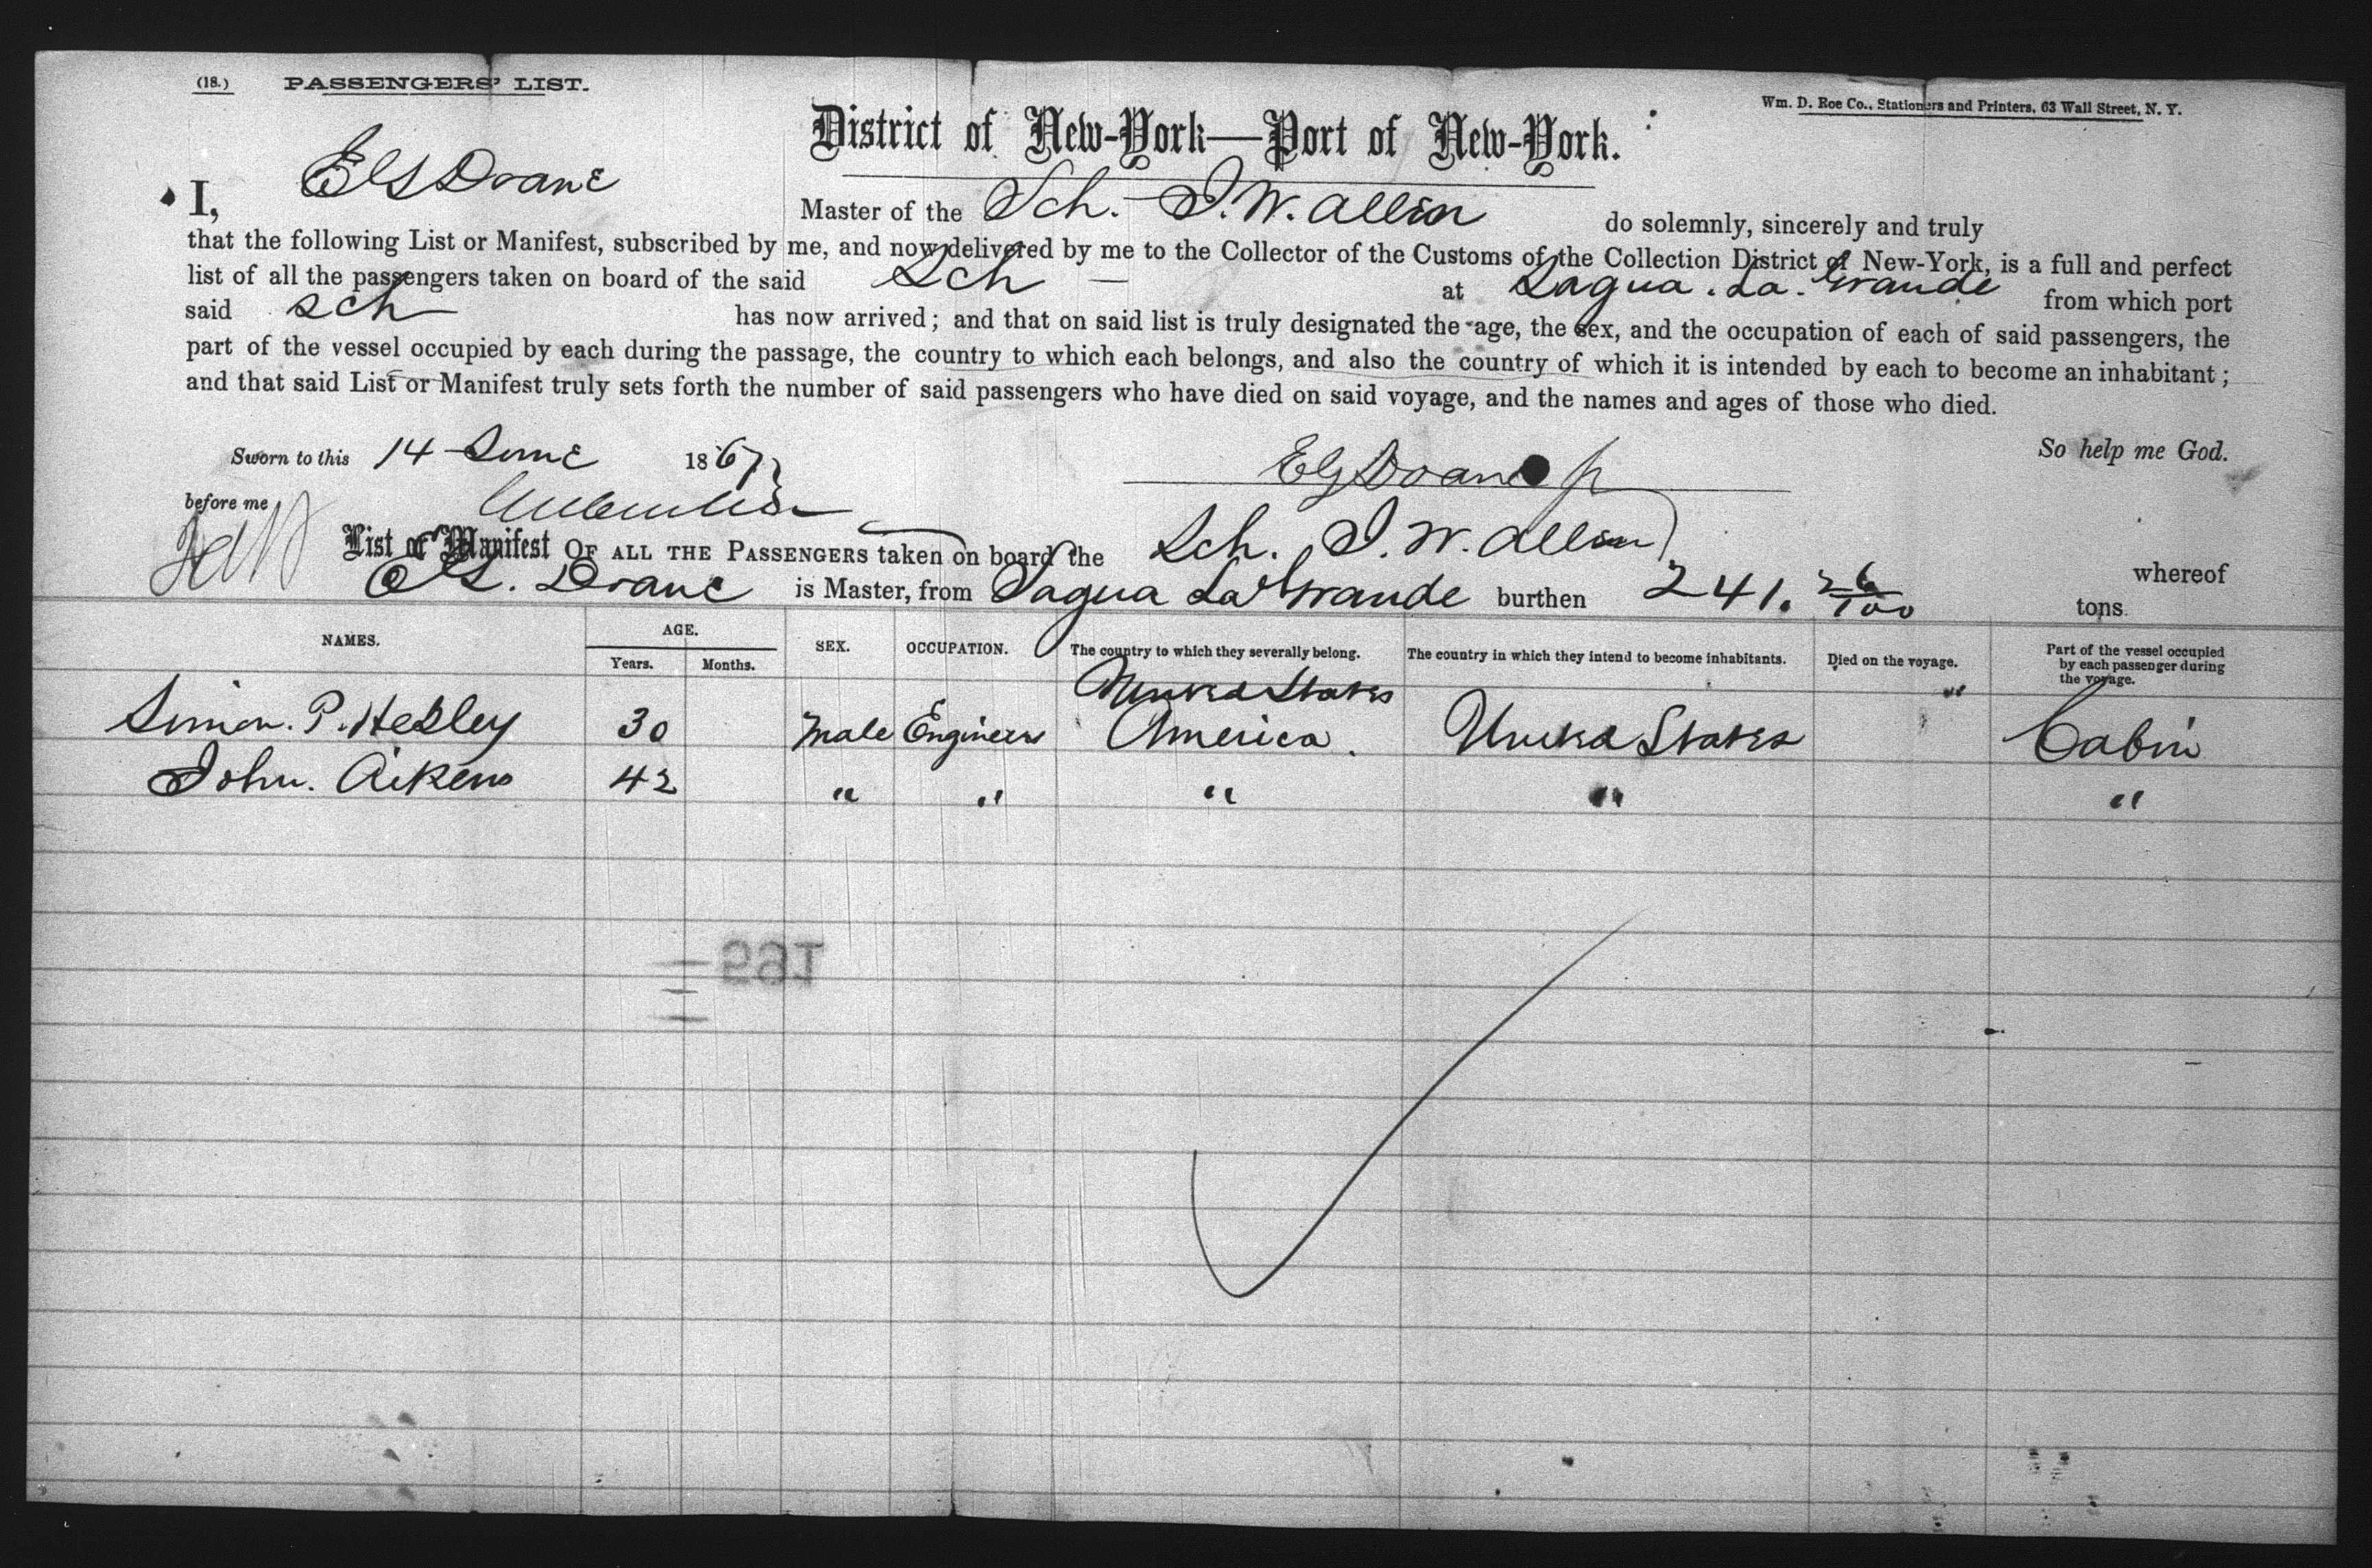 (18.) PASSENGERS' LIST.
Wm. D. Roe Co., Stationers and Printers, 63 Wall Street, N. Y.
District of New-York—Port of New-York.
I, E S Doane Master of the Sch. J. W. Allen do solemnly, sincerely and truly
that the following List or Manifest, subscribed by me, and now delivered by me to the Collector of the Customs of the Collection District of New-York, is a full and perfect
list of all the passengers taken on board of the said Sch — at Sagua. La. Grande from which port
said Sch has now arrived; and that on said list is truly designated the age, the sex, and the occupation of each of said passengers, the
part of the vessel occupied by each during the passage, the country to which each belongs, and also the country of which it is intended by each to become an inhabitant;
and that said List or Manifest truly sets forth the number of said passengers who have died on said voyage, and the names and ages of those who died.
So help me God.
Sworn to this 14 June 1867
Doane jr
before me
List or Manifest OF ALL THE PASSENGERS taken on board the Sch. J. W. Allen whereof
Doane is Master, from Sagua La Grande burthen 241. 26/100 tons.
NAMES. AGE. Years. Months. SEX. OCCUPATION. The country to which they severally belong. The country in which they intend to become inhabitants. Died on the voyage. Part of the vessel occupied by each passenger during the voyage.
Simon. P. Hedley 30 Male Engineer United States America. United States " Cabin
John. Aikens 42 " " " " "
165